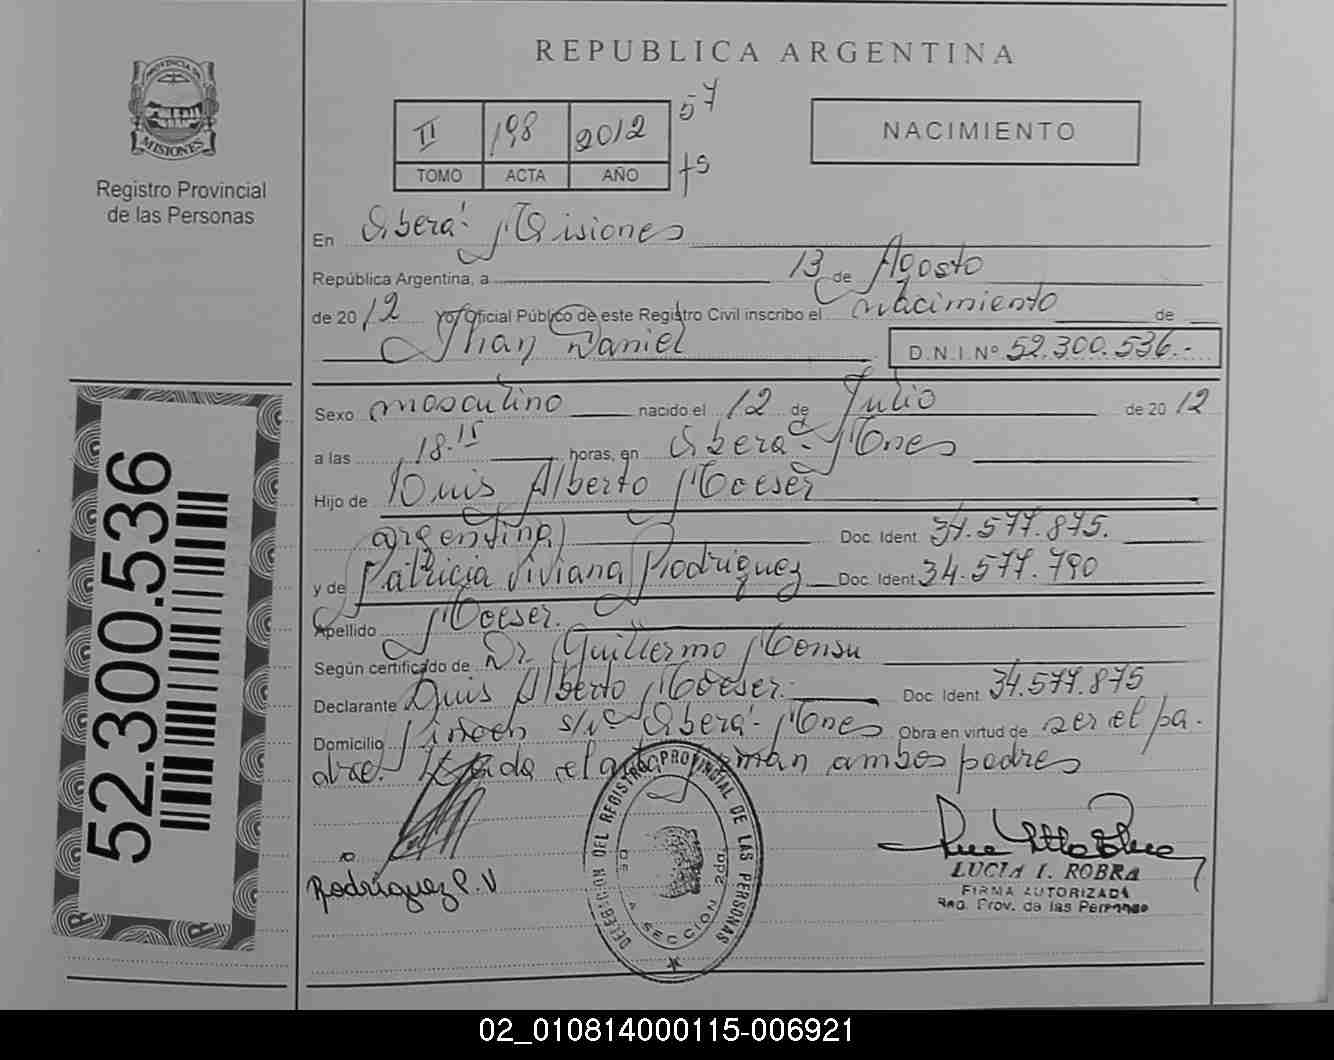 REPUBLICA ARGENTINA
PROVINCIA DE
MISIONES
Registro Provincial
de las Personas
II 198 2012 57
TOMO ACTA AÑO fs
NACIMIENTO
En Oberá - Misiones
República Argentina, a 13 de Agosto
de 2012 yo Oficial Público de este Registro Civil inscribo el nacimiento de
Jhan Daniel D.N.I. Nº 52.300.536.-
Sexo masculino nacido el 12 de Julio de 2012
a las 18.15 horas, en Oberá - Mnes
Hijo de Luis Alberto Moeser
argentina Doc. Ident. 34.577.875.
y de Patricia Viviana Rodriguez Doc. Ident. 34.577.790
Apellido Moeser.
Según certificado de Dr. Guillermo Monsu
Declarante Luis Alberto Moeser.- Doc. Ident. 34.577.875
Domicilio s/nº Oberá - Mnes Obra en virtud de ser el pa.
dre. Leída el acta firman ambos padres
52.300.536
Rodriguez P. V
DELEGACION DEL REGISTRO PROVINCIAL DE LAS PERSONAS
SECCION 2da.
LUCIA I. ROBRA
FIRMA AUTORIZADA
Reg. Prov. de las Personas
02_010814000115-006921